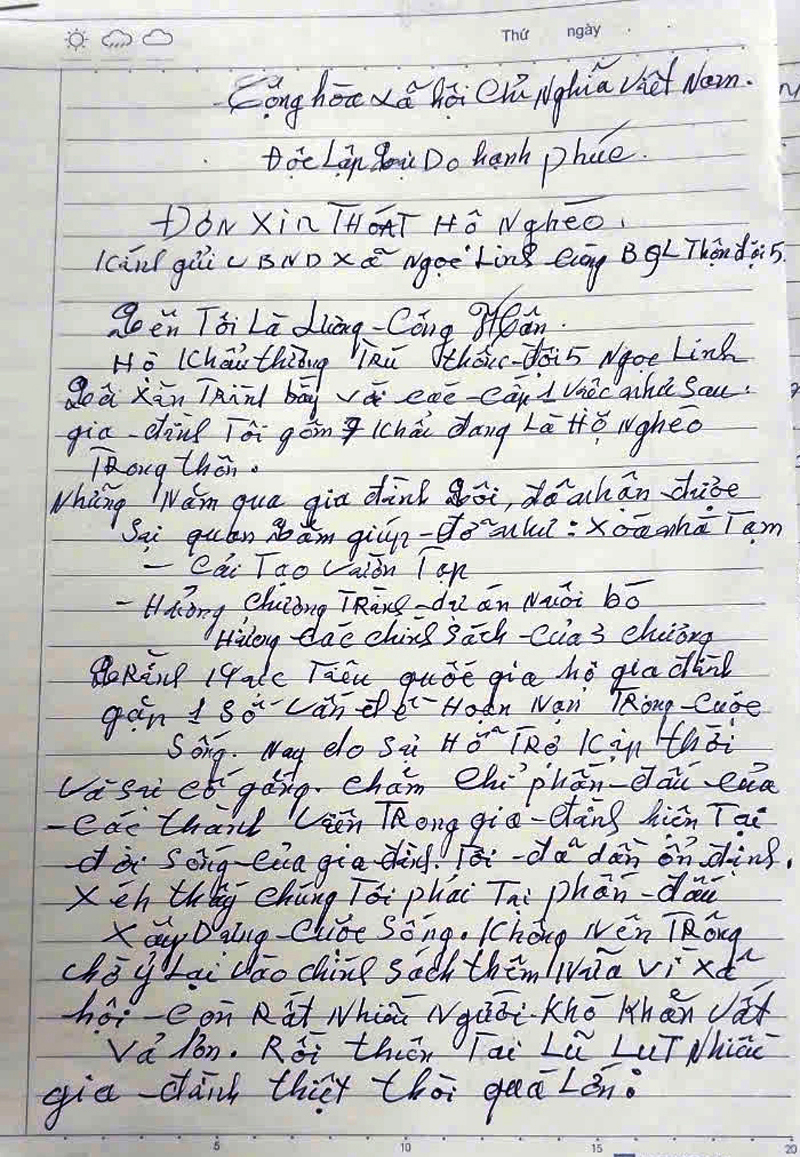 Thứ ngày
Cộng hòa xã hội Chủ Nghĩa Việt Nam.
Độc Lập Tự Do hạnh phúc.
Đơn xin THOÁT Hộ Nghèo.
Kính gửi UBND xã Ngọc Linh cùng BQL Thôn đội 5.
Tên Tôi Là Lường Công
Hộ Khẩu thường Trú thôn đội 5 Ngọc Linh
Tôi xin Trình bày với các cấp 1 việc như sau.
gia đình Tôi gồm 7 Khẩu đang Là Hộ Nghèo
Trong thôn.
Những Năm qua gia đình Tôi, đã nhận được
Sự quan Tâm giúp đỡ như: xóa nhà Tạm
- Cải Tạo vườn Tạp
- Hưởng chương Trình dự án Nuôi bò
Hưởng các chính sách của 3 chương
Trình Mục Tiêu quốc gia hộ gia đình
gặp 1 số vấn đề Hoạn Nạn Trong Cuộc
Sống. Nay do sự Hỗ Trợ Kịp thời
và sự cố gắng. chăm chỉ phấn đấu của
các thành viên Trong gia đình hiện Tại
đời sống của gia đình. Tôi đã dần ổn định.
Xét thấy chúng Tôi phải Tự phấn đấu
Xây Dựng Cuộc Sống. Không Nên Trông
chờ ỷ Lại vào chính sách thêm Nữa vì xã
hội còn Rất Nhiều Người Khó Khăn vất
vả hơn. Rồi thiên Tai Lũ LụT Nhiều
gia đình thiệt thòi quá Lớn.
5 10 15 20